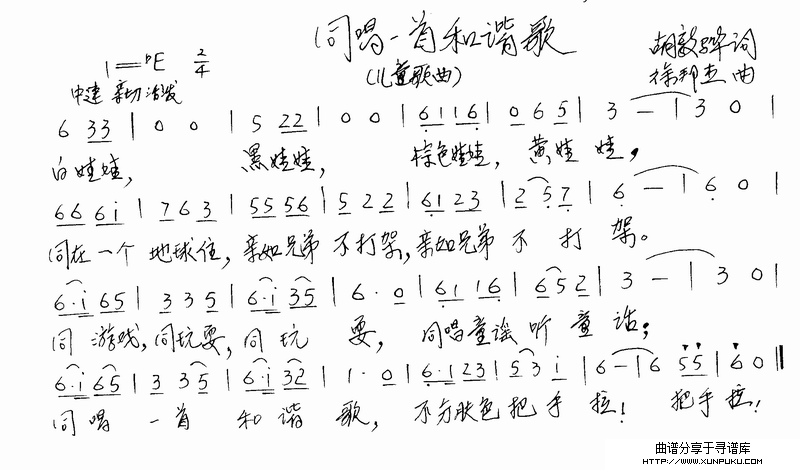 同唱一首和谐歌
(儿童歌曲)
1=♭E 2/4
中速 亲切 活发
胡敦骅词
徐邦杰曲
6 33 | 0 0 | 5 22 | 0 0 | 6116 | 0 6 5 | 3 — | 3 0 |
白娃娃, 黑娃娃, 棕色娃娃, 黄娃娃,
66 6i | 7 6 3 | 55 56 | 5 2 2 | 61 23 | 2 57 | 6 — | 6 0 |
同在一个地球住, 亲如兄弟不打架, 亲如兄弟不打架。
6·i 65 | 3 3 5 | 6·i 35 | 6 · 0 | 61 16 | 6 5 2 | 3 — | 3 0 |
同游戏, 同玩耍, 同玩耍, 同唱童谣听童话;
6·i 65 | 3 3 5 | 6·i 32 | 1 · 0 | 6·1 23 | 5 3 i | 6 — | 6 55 | 6 0 ‖
同唱一首和谐歌, 不分肤色把手拉! 把手拉!
曲谱分享于寻谱库
HTTP://WWW.XUNPUKU.COM